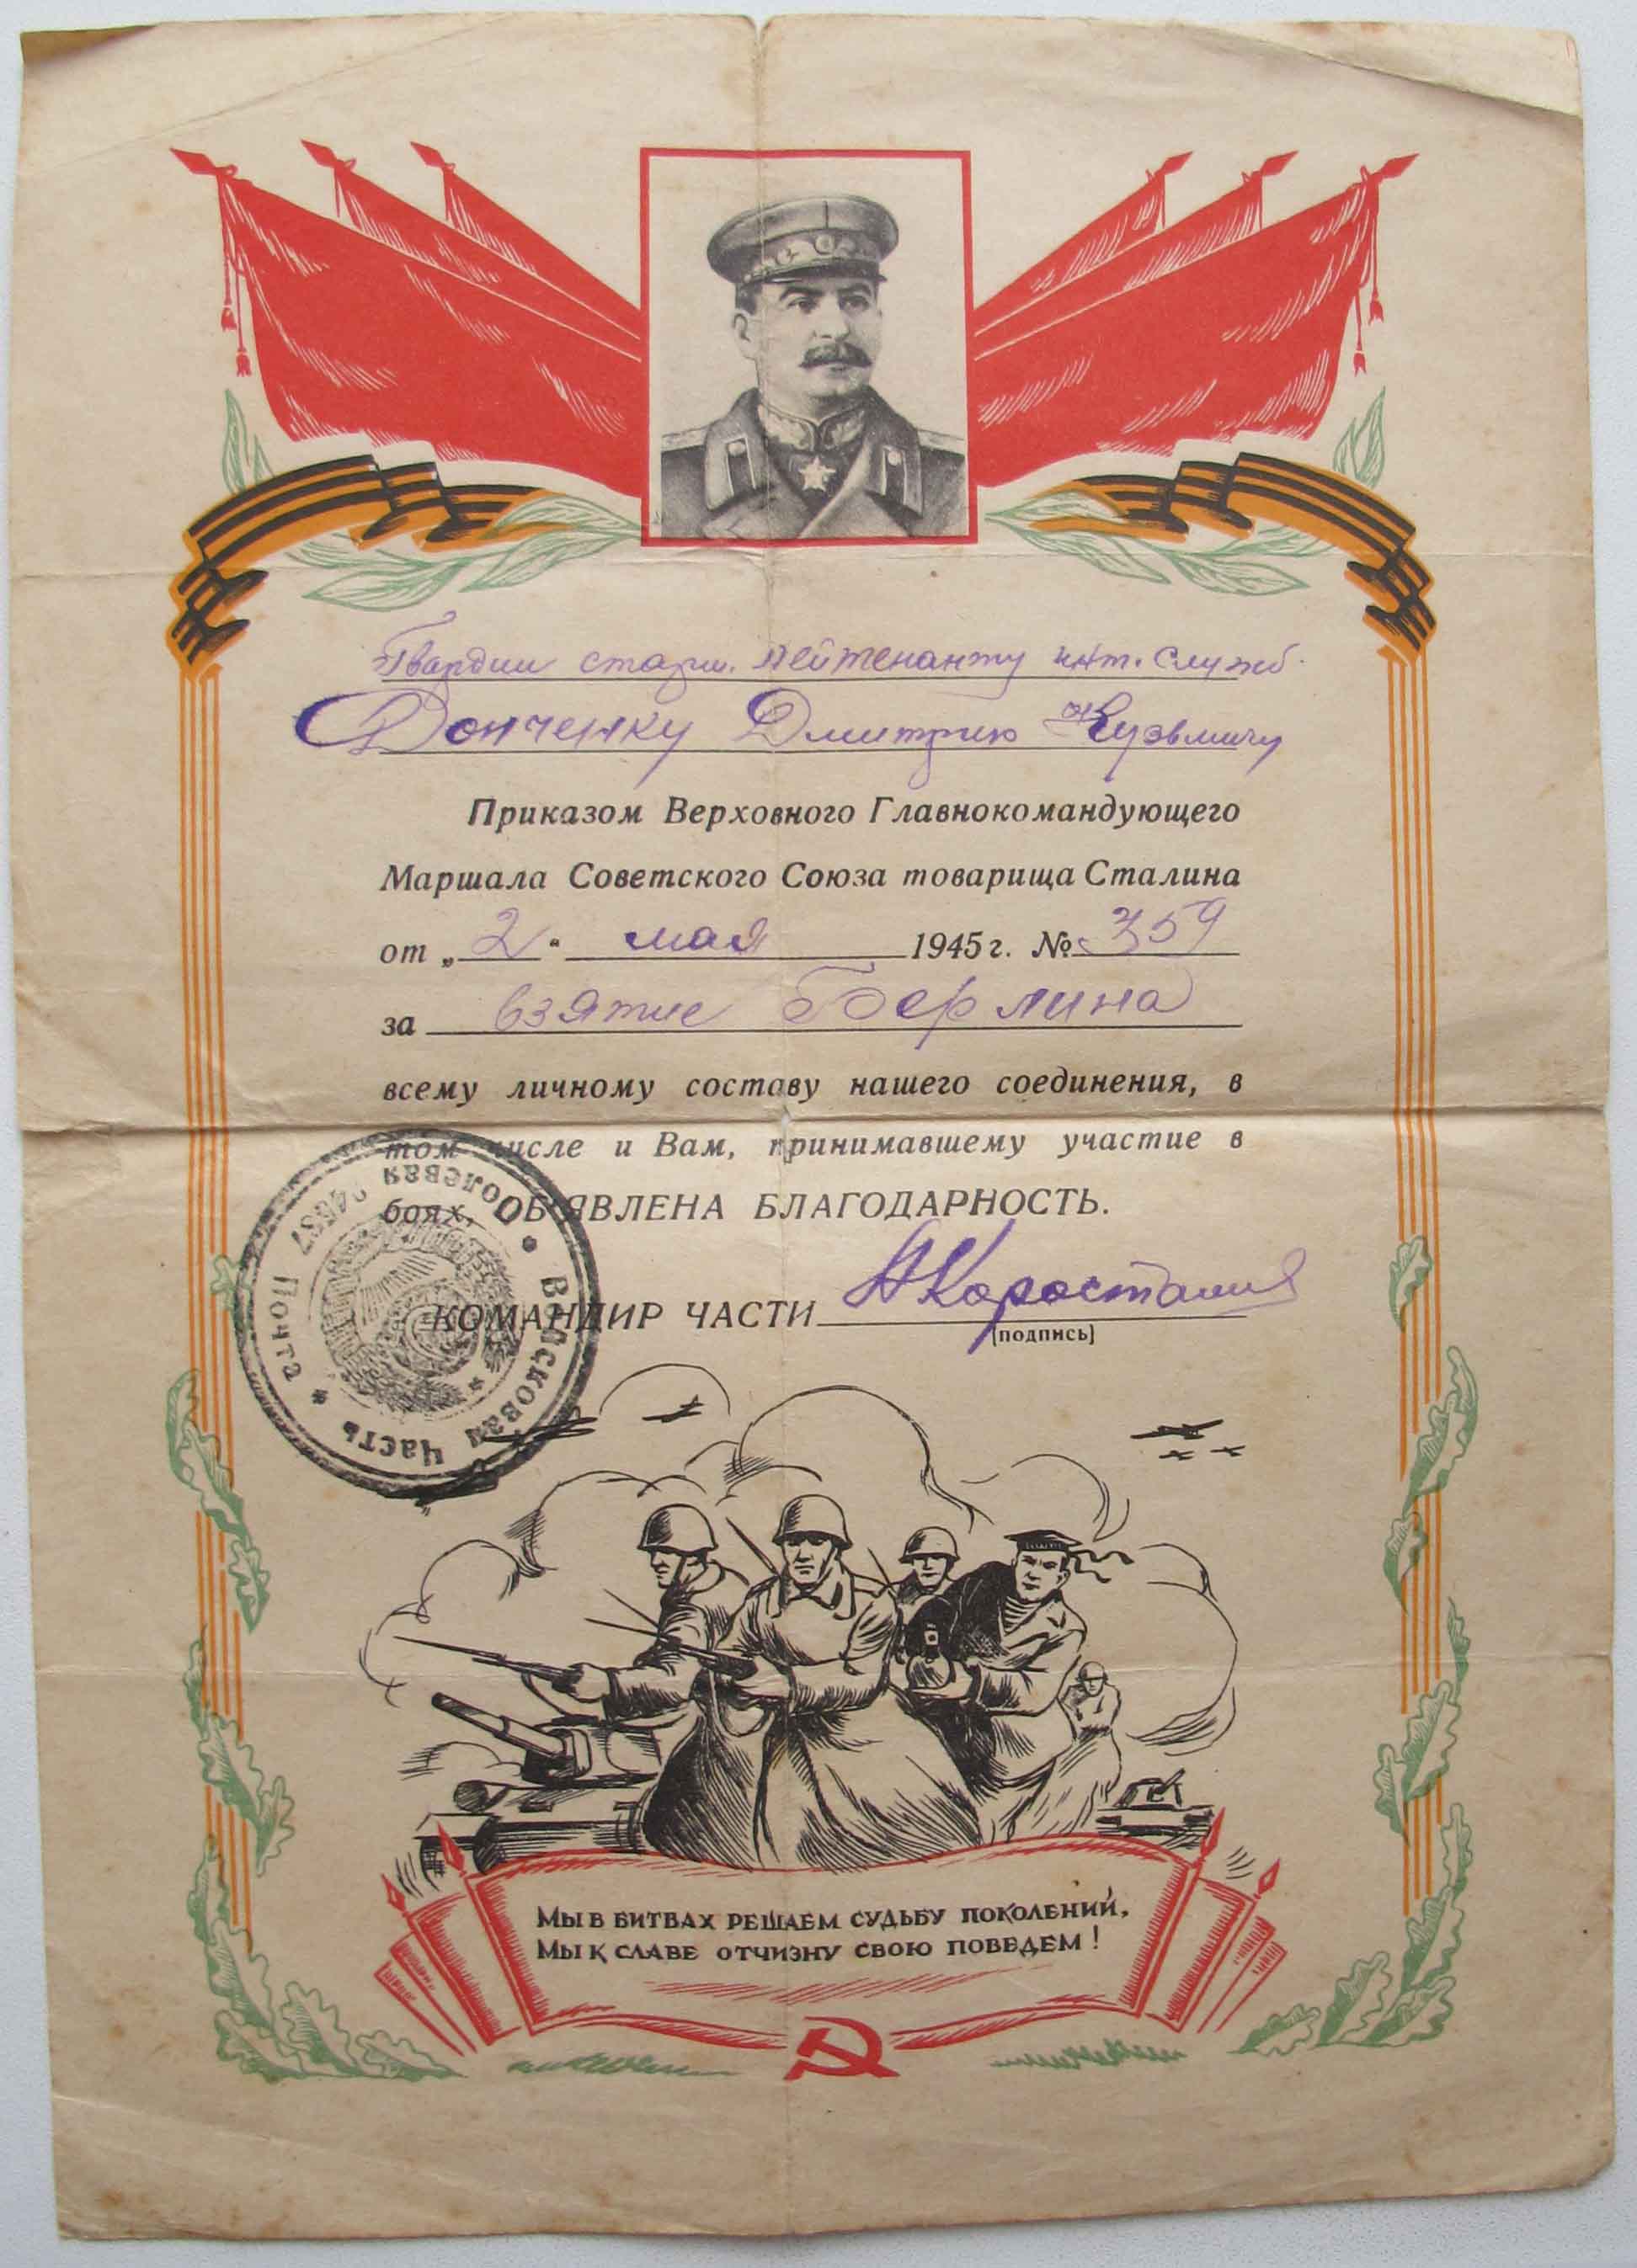 Гвардии старш. лейтенанту инт. служб.
Донченку Дмитрию Кузьмичу
Приказом Верховного Главнокомандующего
Маршала Советского Союза товарища Сталина
от „2“ мая 1945 г. № 359
за взятие Берлина
всему личному составу нашего соединения, в
том числе и Вам, принимавшему участие в
боях, ОБ'ЯВЛЕНА БЛАГОДАРНОСТЬ.
КОМАНДИР ЧАСТИ
(подпись)
Войсковая Часть * Полевая Почта
МЫ В БИТВАХ РЕШАЕМ СУДЬБУ ПОКОЛЕНИЙ,
МЫ К СЛАВЕ ОТЧИЗНУ СВОЮ ПОВЕДЕМ!